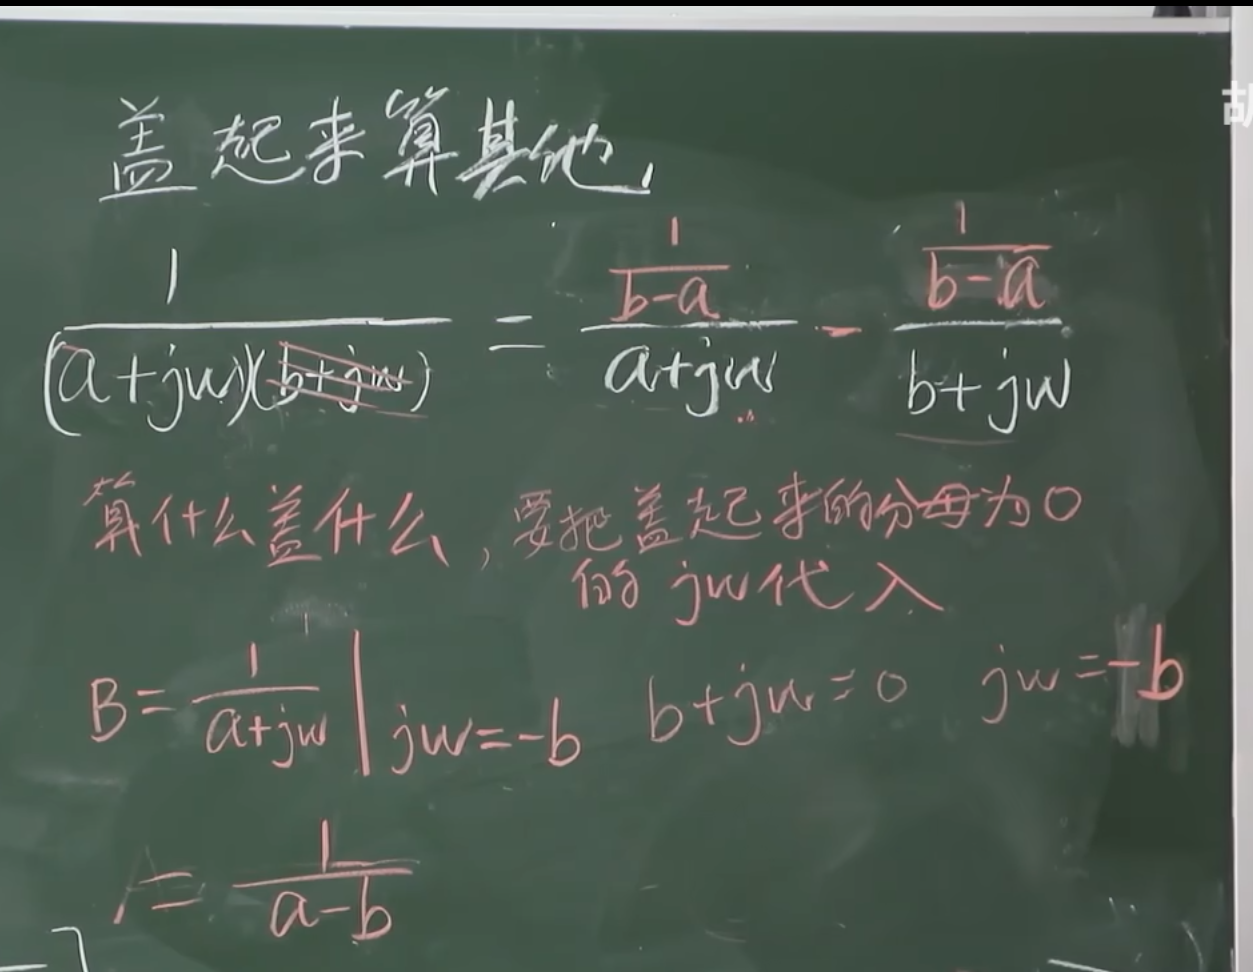 胡
盖起来算其他
1/((a+jw)(b+jw)) = (1/(b-a))/(a+jw) - (1/(b-a))/(b+jw)
算什么盖什么,要把盖起来的分母为0
的jw代入
B=1/(a+jw)|jw=-b b+jw=0 jw=-b
=1/(a-b)